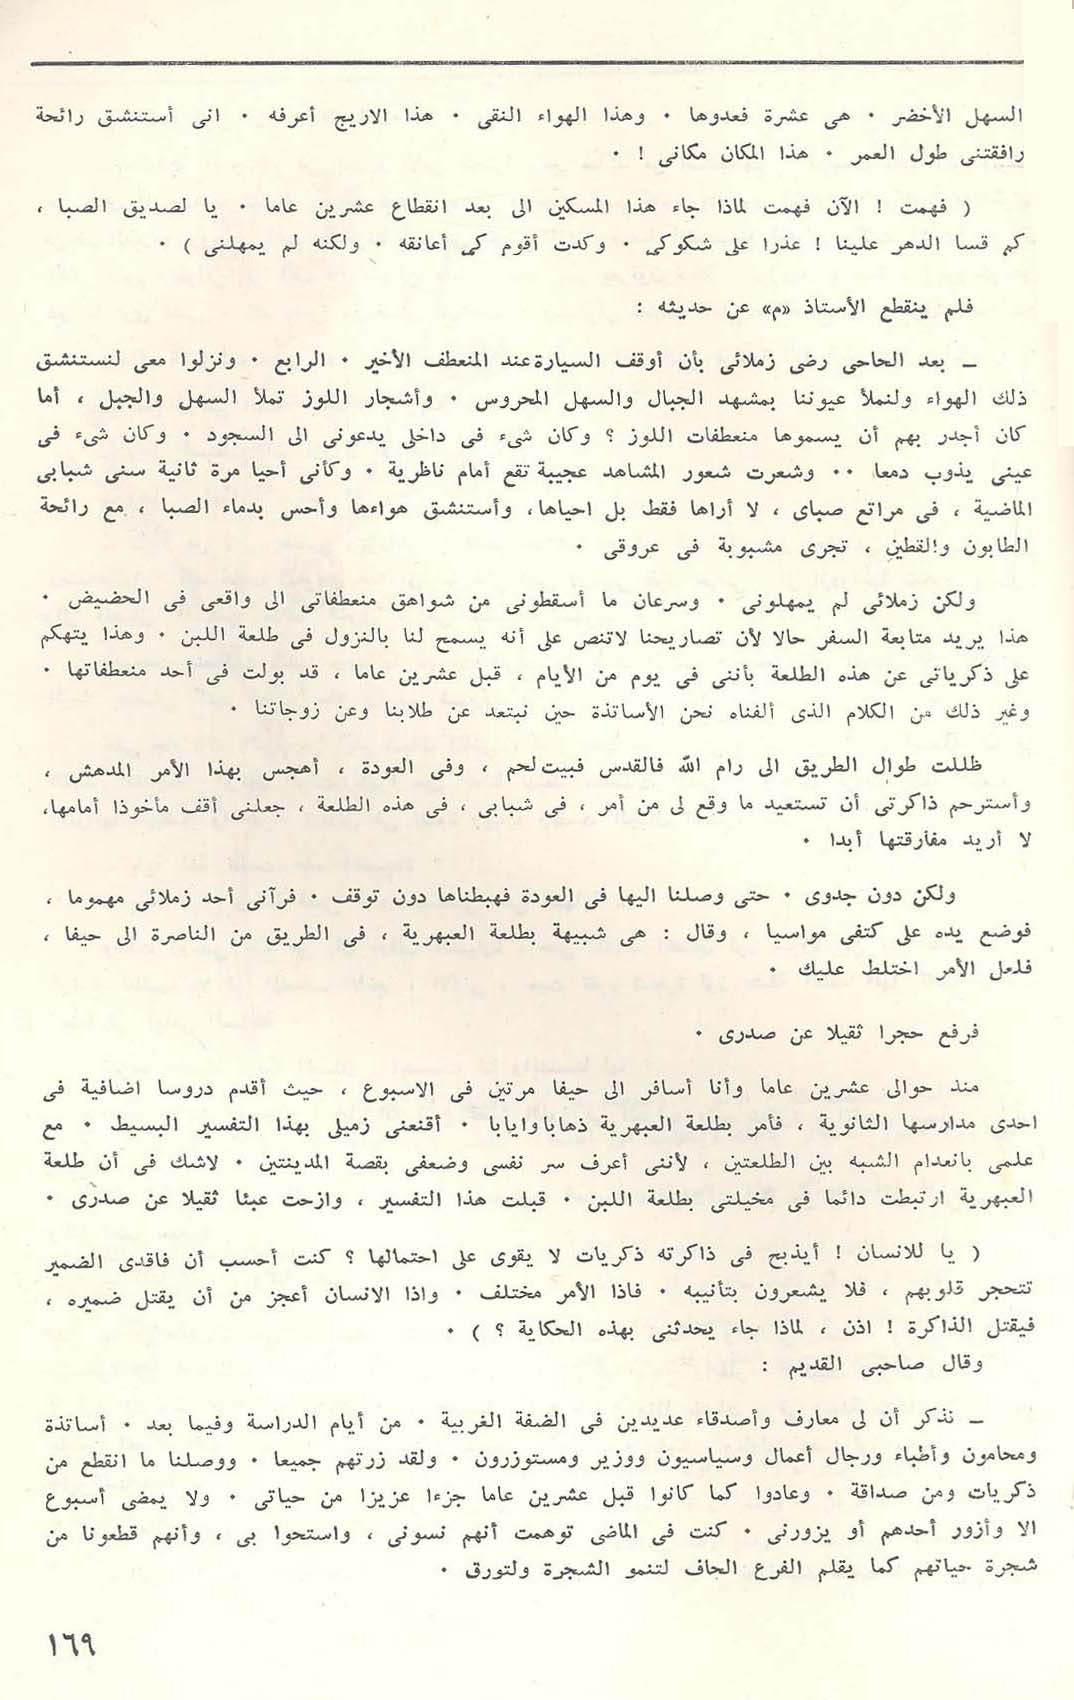 السهل الأخضر . هى عشرة فعدوها . وهذا الهواء النقى . هذا الاريج أعرفه . انى أستنشق رائحة
رافقتنى طول العمر . هذا المكان مكانى ! .
( فهمت ! الآن فهمت لماذا جاء هذا المسكين الى بعد انقطاع عشرين عاما . يا لصديق الصبا ،
كم قسا الدهر علينا ! عذرا على شكوكي . وكدت أقوم كي أعانقه . ولكنه لم يمهلنى ) .
فلم ينقطع الأستاذ «م» عن حديثه :
ــ بعد الحاحى رضى زملائى بأن أوقف السيارة عند المنعطف الأخير . الرابع . ونزلوا معى لنستنشق
ذلك الهواء ولنملأ عيوننا بمشهد الجبال والسهل المحروس . وأشجار اللوز تملأ السهل والجبل ، أما
كان أجدر بهم أن يسموها منعطفات اللوز ؟ وكان شىء فى داخلى يدعونى الى السجود . وكان شىء فى
عينى يذوب دمعا .. وشعرت شعور المشاهد عجيبة تقع أمام ناظرية . وكأنى أحيا مرة ثانية سنى شبابى
الماضية ، فى مراتع صباى ، لا أراها فقط بل احياها، وأستنشق هواءها وأحس بدماء الصبا ، مع رائحة
الطابون والقطين ، تجرى مشبوبة فى عروقى .
ولكن زملائى لم يمهلونى . وسرعان ما أسقطونى من شواهق منعطفاتى الى واقعى فى الحضيض .
هذا يريد متابعة السفر حالا لأن تصاريحنا لاتنص على أنه يسمح لنا بالنزول فى طلعة اللبن . وهذا يتهكم
على ذكرياتى عن هذه الطلعة بأننى فى يوم من الأيام ، قبل عشرين عاما ، قد بولت فى أحد منعطفاتها .
وغير ذلك من الكلام الذى ألفناه نحن الأساتذة حين نبتعد عن طلابنا وعن زوجاتنا .
ظللت طوال الطريق الى رام الله فالقدس فبيت لحم ، وفى العودة ، أهجس بهذا الأمر المدهش ،
وأسترحم ذاكرتى أن تستعيد ما وقع لى من أمر ، فى شبابى ، فى هذه الطلعة ، جعلنى أقف مأخوذا أمامها،
لا أريد مفارقتها أبدا .
ولكن دون جدوى . حتى وصلنا اليها فى العودة فهبطناها دون توقف . فرآنى أحد زملائى مهموما ،
فوضع يده على كتفى مواسيا ، وقال : هى شبيهة بطلعة العبهرية ، فى الطريق من الناصرة الى حيفا ،
فلعل الأمر اختلط عليك .
فرفع حجرا ثقيلا عن صدرى .
منذ حوالى عشرين عاما وأنا أسافر الى حيفا مرتين فى الاسبوع ، حيث أقدم دروسا اضافية فى
احدى مدارسها الثانوية ، فأمر بطلعة العبهرية ذهابا وايابا . أقنعنى زميلى بهذا التفسير البسيط . مع
علمى بانعدام الشبه بين الطلعتين ، لأننى أعرف سر نفسى وضعفى بقصة المدينتين . لاشك فى أن طلعة
العبهرية ارتبطت دائما فى مخيلتى بطلعة اللبن . قبلت هذا التفسير ، وازحت عبئا ثقيلا عن صدرى .
( يا للانسان ! أيذبح فى ذاكرته ذكريات لا يقوى على احتمالها ؟ كنت أحسب أن فاقدى الضمير
تتحجر قلوبهم ، فلا يشعرون بتأنيبه . فاذا الأمر مختلف . واذا الانسان أعجز من أن يقتل ضميره ،
فيقتل الذاكرة ! اذن ، لماذا جاء يحدثنى بهذه الحكاية ؟ ) .
وقال صاحبى القديم :
ــ نذكر أن لى معارف وأصدقاء عديدين فى الضفة الغربية . من أيام الدراسة وفيما بعد . أساتذة
ومحامون وأطباء ورجال أعمال وسياسيون ووزير ومستوزرون . ولقد زرتهم جميعا . ووصلنا ما انقطع من
ذكريات ومن صداقة . وعادوا كما كانوا قبل عشرين عاما جزءا عزيزا من حياتى . ولا يمضى أسبوع
الا وأزور أحدهم أو يزورنى . كنت فى الماضى توهمت أنهم نسونى ، واستحوا بى ، وأنهم قطعونا من
شجرة حياتهم كما يقلم الفرع الجاف لتنمو الشجرة ولتورق .
١٦٩